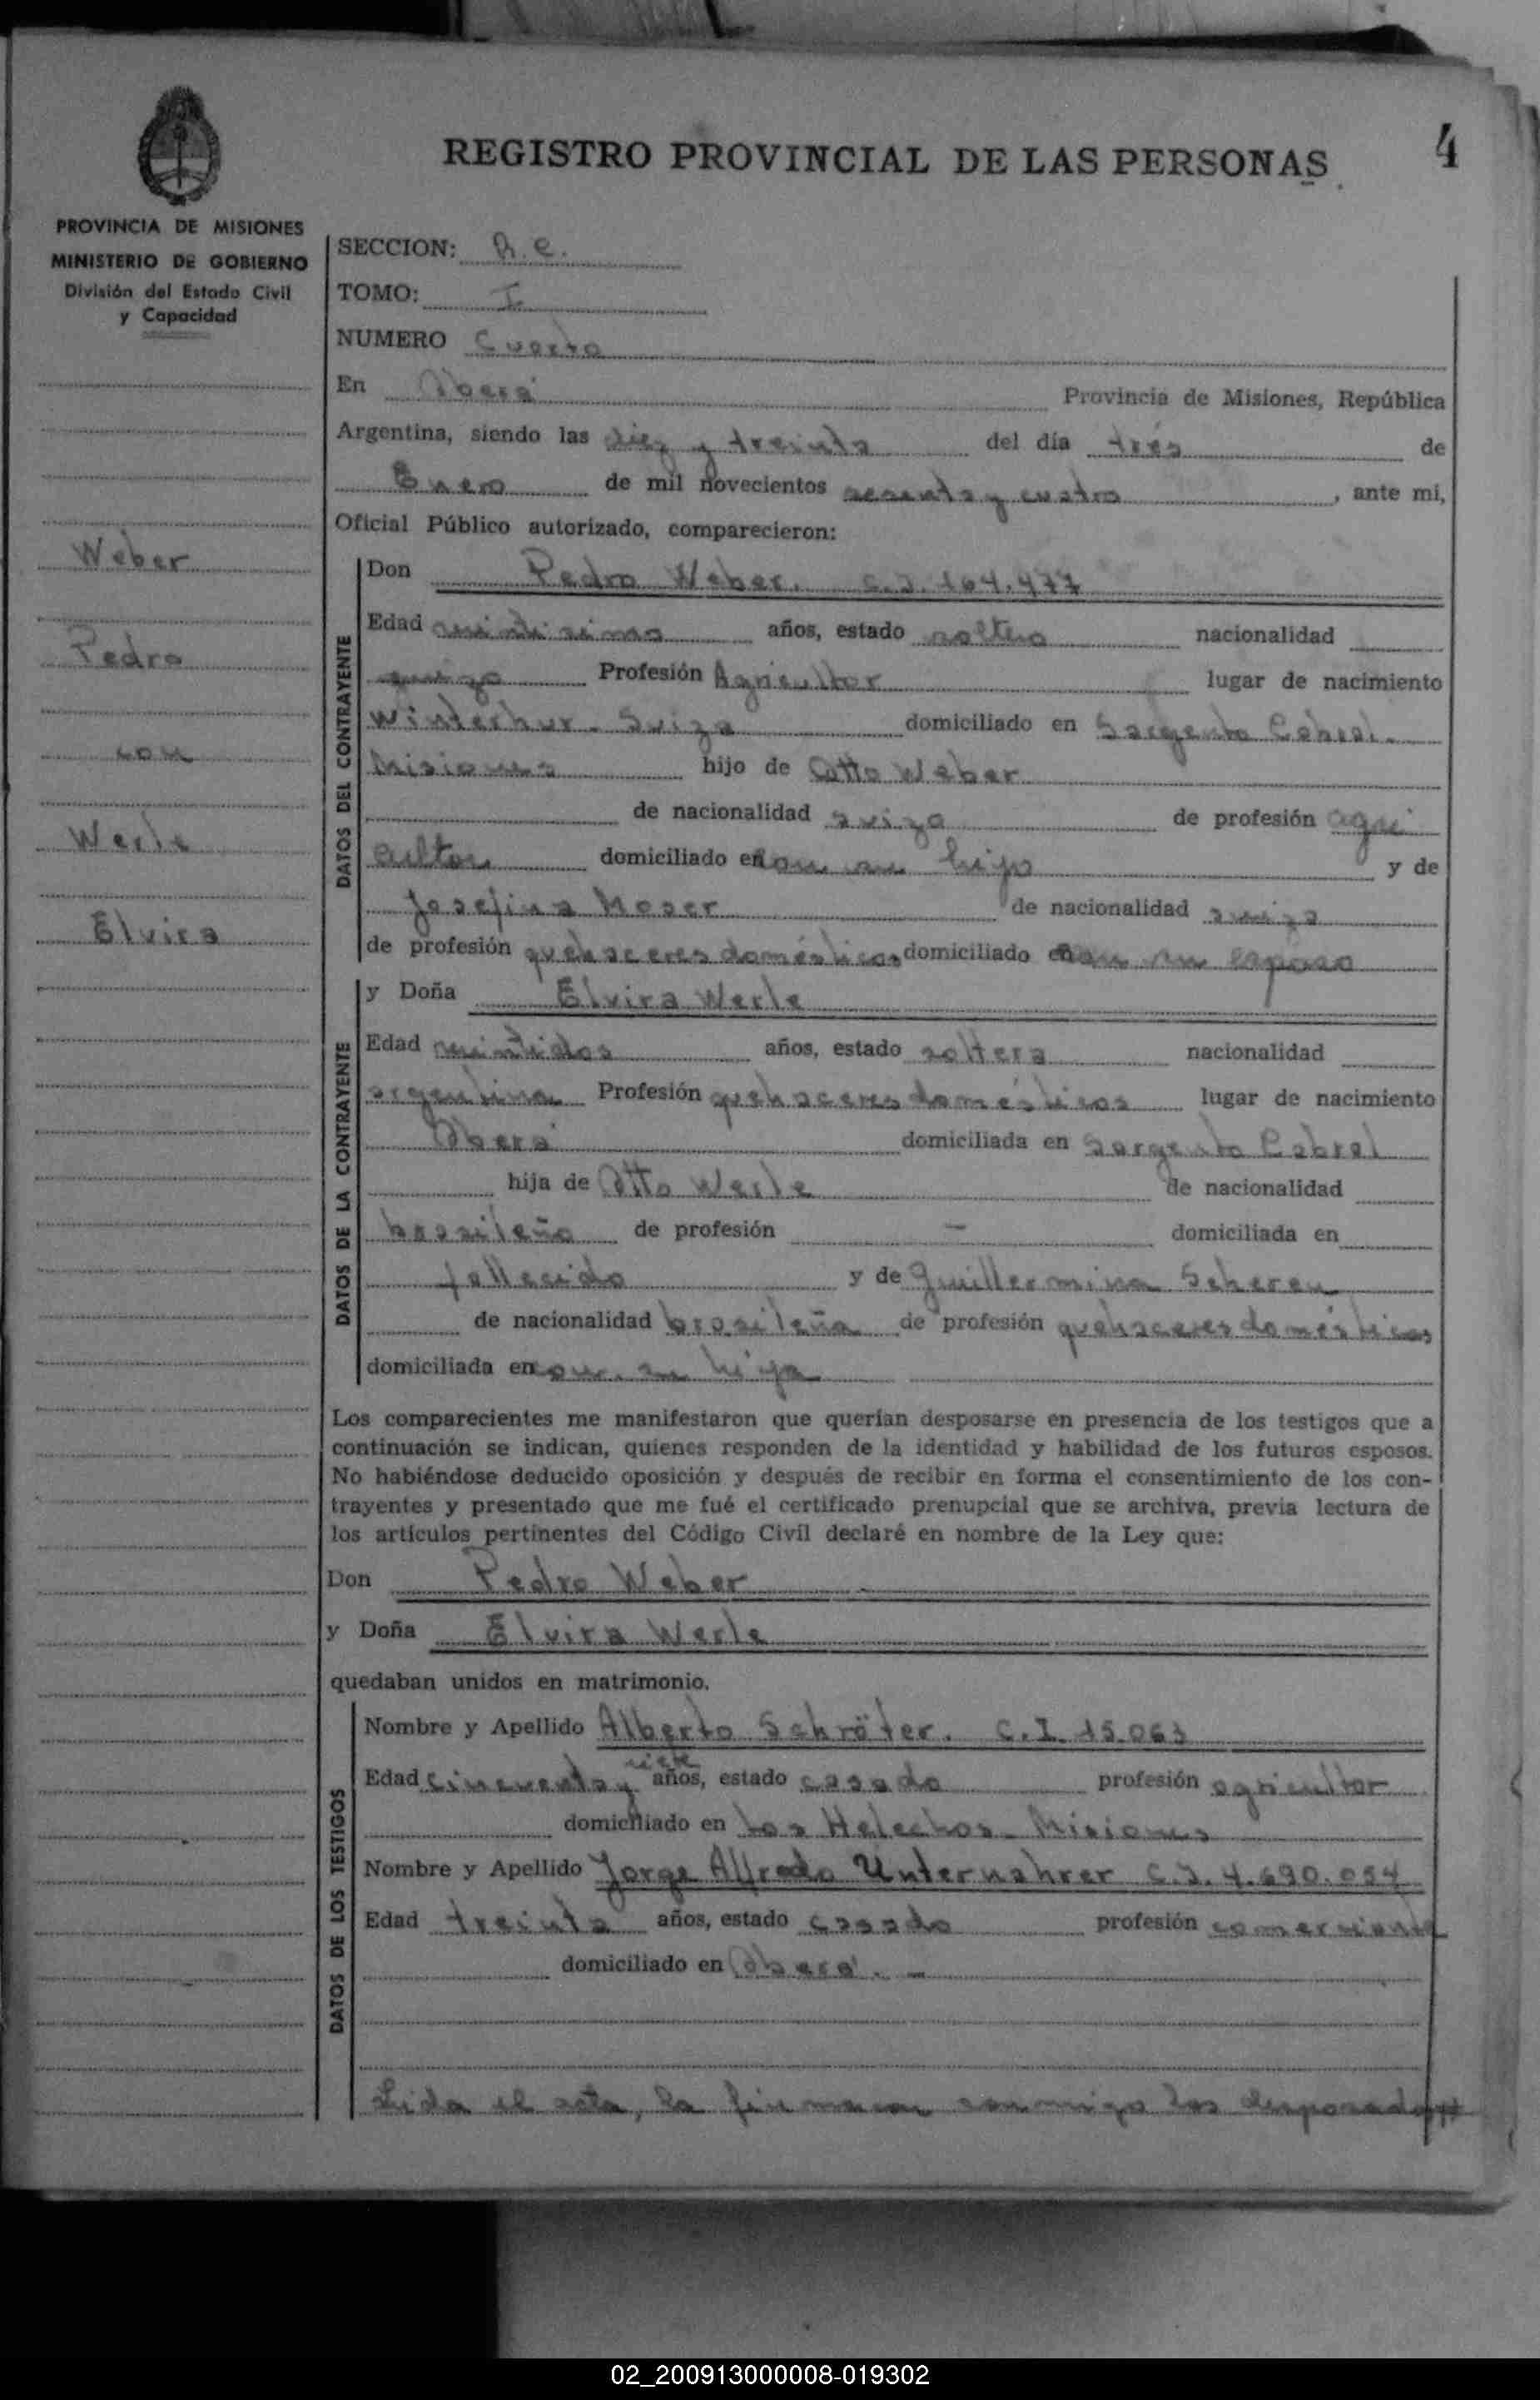 REGISTRO PROVINCIAL DE LAS PERSONAS
4
PROVINCIA DE MISIONES
MINISTERIO DE GOBIERNO
División del Estado Civil
y Capacidad
Weber
Pedro
con
Werle
Elvira
SECCION: R.C.
TOMO: I
NUMERO Cuarto
En Oberá Provincia de Misiones, República
Argentina, siendo las diez y treinta del día tres de
Enero de mil novecientos sesenta y cuatro, ante mí,
Oficial Público autorizado, comparecieron:
DATOS DEL CONTRAYENTE
Don Pedro Weber. C.I. 164.477
Edad años, estado soltero nacionalidad
suizo Profesión Agricultor lugar de nacimiento
Winterhur - Suiza domiciliado en Sargento Cabral.
Misiones hijo de Otto Weber
de nacionalidad suiza de profesión agri
cultor domiciliado en con su hijo y de
Josefina Moser de nacionalidad suiza
de profesión quehaceres domésticos domiciliado en con su esposo
DATOS DE LA CONTRAYENTE
y Doña Elvira Werle
Edad veintidos años, estado soltera nacionalidad
argentina Profesión quehaceres domésticos lugar de nacimiento
Oberá domiciliada en Sargento Cabral
hija de Otto Werle de nacionalidad
brasileño de profesión - domiciliada en
fallecido y de Guillermina Scheren
de nacionalidad brasileña de profesión quehaceres domésticos
domiciliada en con su hija
Los comparecientes me manifestaron que querían desposarse en presencia de los testigos que a
continuación se indican, quienes responden de la identidad y habilidad de los futuros esposos.
No habiéndose deducido oposición y después de recibir en forma el consentimiento de los con-
trayentes y presentado que me fué el certificado prenupcial que se archiva, previa lectura de
los artículos pertinentes del Código Civil declaré en nombre de la Ley que:
Don Pedro Weber
y Doña Elvira Werle
quedaban unidos en matrimonio.
DATOS DE LOS TESTIGOS
Nombre y Apellido Alberto Schröter. C.I. 15.063
Edad cincuenta y años, estado casado profesión agricultor
domiciliado en Los Helechos - Misiones
Nombre y Apellido Jorge Alfredo Unternahrer C.I. 4.690.054
Edad treinta años, estado casado profesión comerciante
domiciliado en Oberá. -
Leida el acta, la firmaron conmigo los desposados
02_200913000008-019302